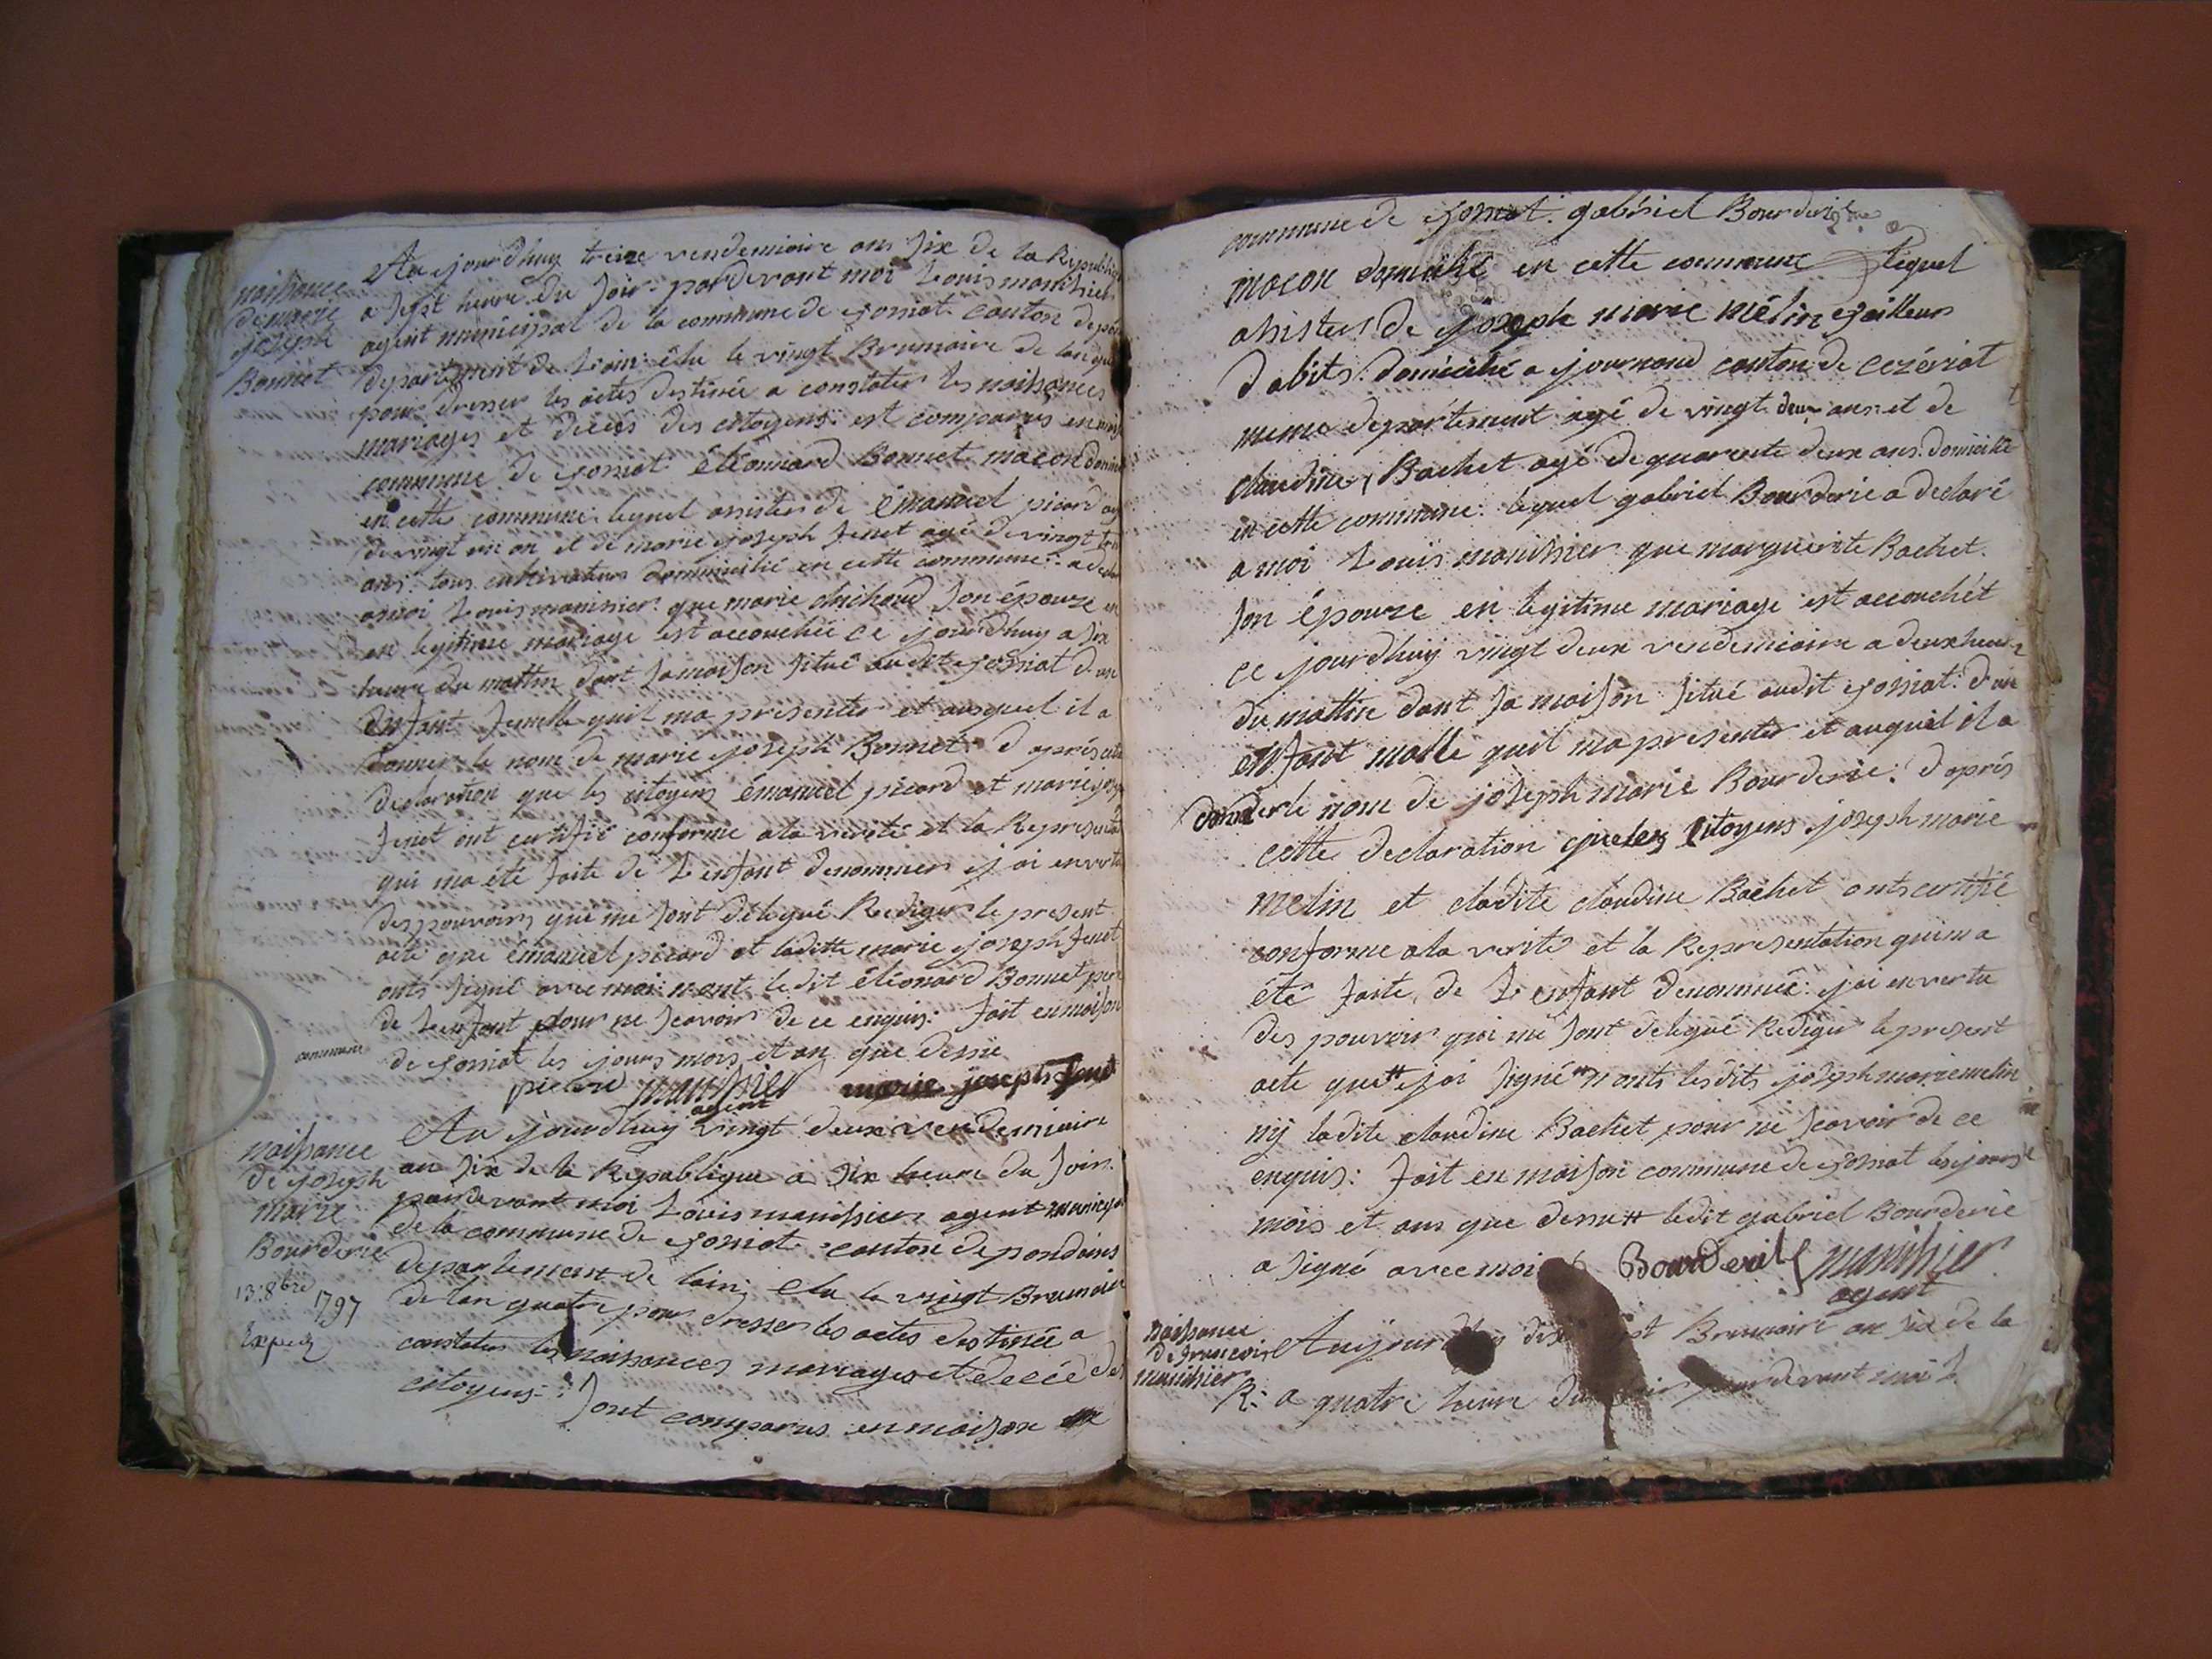 naissance
de marie
joseph
Bonnet
Au jourdhuy treize vendemiaire an six de la Republique
a sept heure du soir pardevant moi Louis
agent municipal de la commune de jorriat canton de
departement de Lain élu le vingt Brumaire de lan
pour dresser les actes destinée a constater les naissances
mariages et décés des citoyens est comparus en
commune de éléonnard Bonnet macon
en cette commune lequel assister de émanuel picard
de vingt un an et de marie joseph Jenet agé de vingt
ans tous cultivateurs domicilié en cette commune a
amoi Louis que marie son épouze
en legitime mariage est accouchée ce jourdhuy a six
heure du mattin dant sa maison situé audit d'un
enfant femelle quil ma presenter et auquel il a
donner le nom de marie joseph Bonnet d après cette
declaration que les citoyens émanuel picard et marie
Jenet ont certifié conforme ala verité et la
qui ma été faite de Lenfant denommer j ai en
des pouvoirs que me sont délegué Rediger le present
acte que émanuel picard et laditte marie joseph Jenet
onts signé avec moi nont ledit éléonard Bonnet
de Lenfant pour ne scavoir de ce enquis fait en maison
commune
de les jours mois et an que dessus
picard agent marie joseph Jenet
naissance
de joseph
marie
Bourderie
13 8bre
1797
Au jourdhuy vingt deux vendemiaire
an six de la Republique a six heure du soir
pardevant moi Louis agent
de la commune de canton de pondains
departement de lain elu le vingt Brumaire
de lan quatre pour dresser les actes destinée a
constater les naissances mariages et décée des
citoyens sont comparus en maison
commune de gabriel Bourderie
macon domicilié en cette commune lequel
assister de joseph marie mélin tailleur
dabits domicilié a journand canton de cezériat
meme departement agé de vingt deux ans et de
claudine Bachet agé de quarente deux ans domicilié
en cette commune lequel gabriel Bourderie a declaré
a moi Louis que marguerite Bachet
son épouze en legitime mariage est accouchét
ce jourdhuy vingt deux vendemiaire a deux heure
du mattin dant sa maison situé audit d'un
enfant malle quil ma presenter et auquel il a
donner le nom de joseph marie Bourderie d après
cette declaration que les citoyens joseph marie
melin et ladite claudine Bachet onts certifié
conforme ala verité et la Representation qui ma
été faite de L enfant denommé j ai en vertu
des pouvoir qui me sont delegué Rediger le present
acte que # j ai signé n onts lesdits joseph marie melin
ny ladite claudine Bachet pour ne scavoir de ce
enquis: fait en maison commune de les jours
mois et an que dessu # ledit gabriel Bourderie
a signé avec moi Bourderie
agent
naissance
de francois
Aujourdhuy Brumaire an six de la
R: a quatre heure du soir pardevant moi L